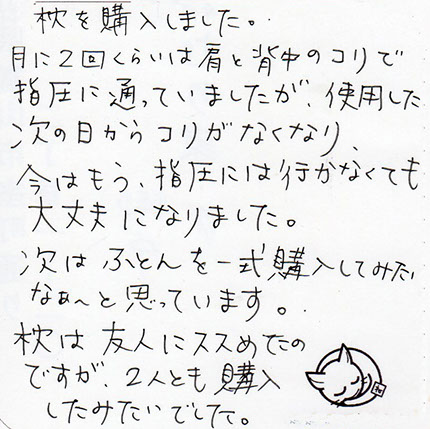 枕を購入しました。
月に2回くらいは肩と背中のコリで
指圧に通っていましたが、使用した
次の日からコリがなくなり、
今はもう、指圧には行かなくても
大丈夫になりました。
次はふとんを一式購入してみたい
なぁ〜と思っています。
枕は友人にススめたの
ですが、2人とも購入
したみたいでした。